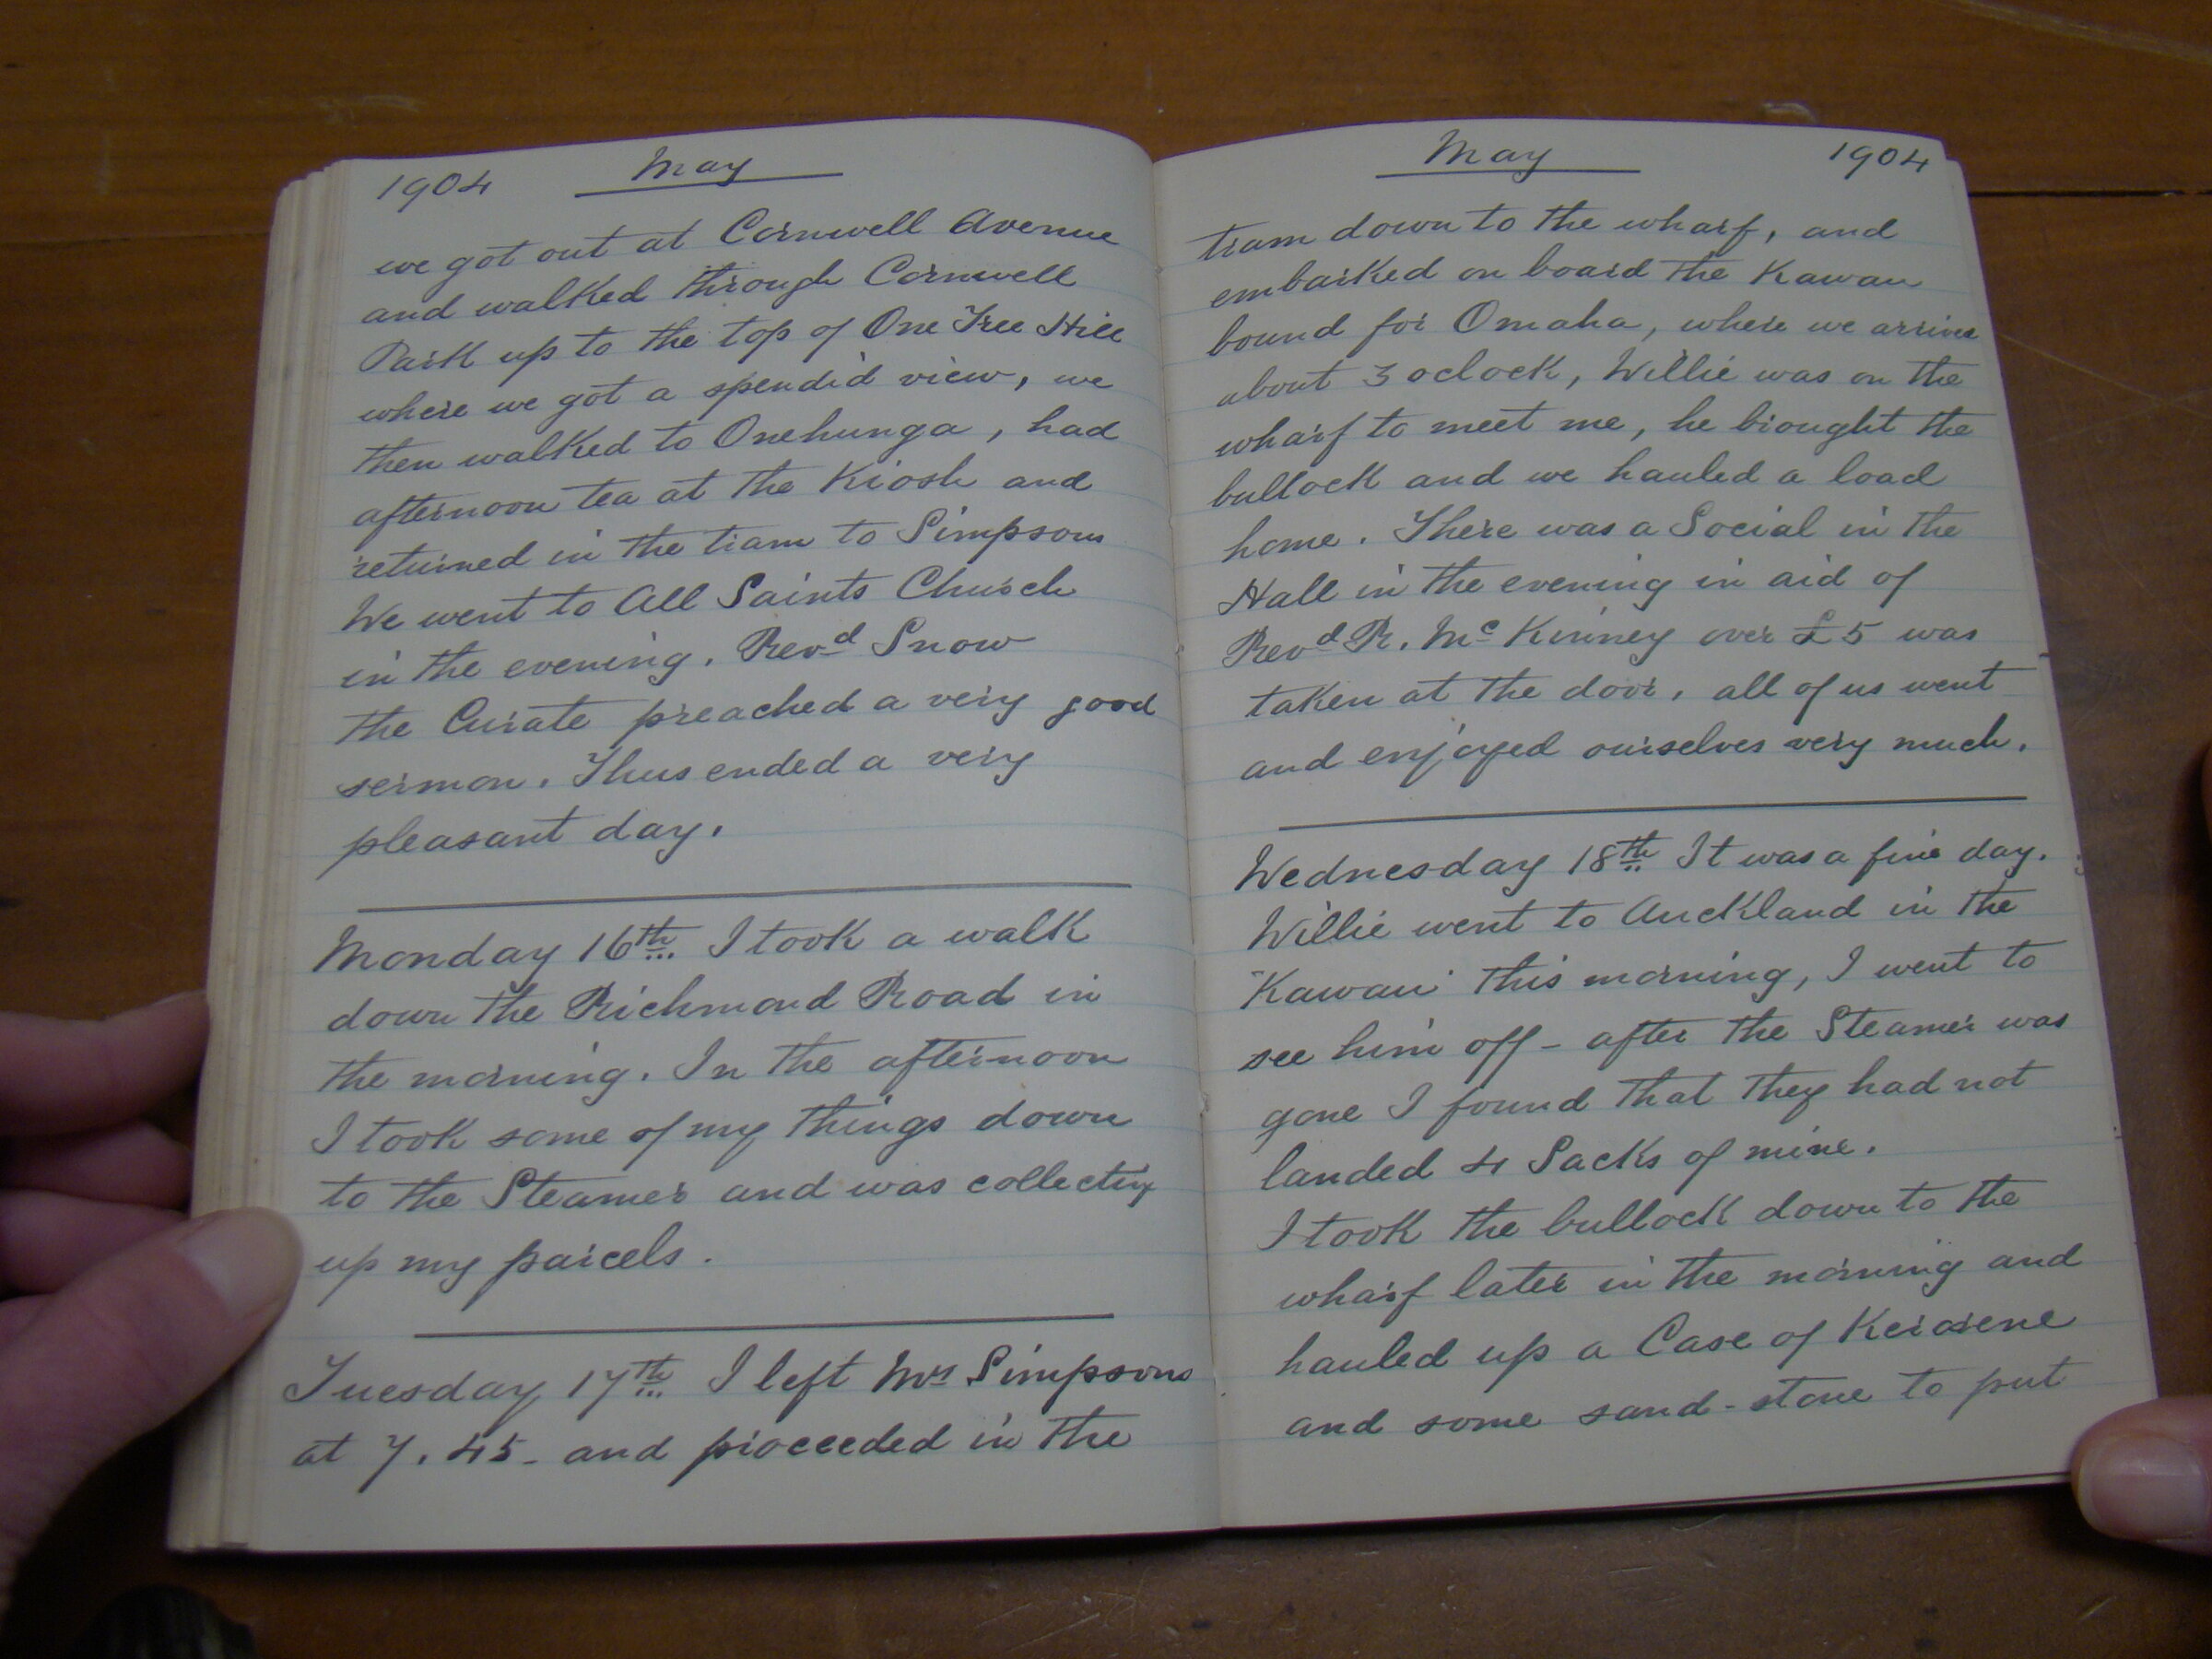 1904 May
we got out at Cornwell Avenue
and walked through Cornwell
Park up to the top of One Tree Hill
where we got a spendid view, we
then walked to Onehunga, had
afternoon tea at the Kiosk and
returned in the tram to Simpsons
We went to All Saints Church
in the evening. Revd Snow
the Curate preached a very good
sermon. Thus ended a very
pleasant day.
Monday 16th I took a walk
down the Richmond Road in
the morning. In the afternoon
I took some of my things down
to the Steamer and was collecting
up my parcels.
Tuesday 17th I left Mrs Simpsons
at 7.45 - and proceeded in the
May 1904
tram down to the wharf, and
embarked on board the Kawau
bound for Omaha, where we arrive
about 3 oclock, Willie was on the
wharf to meet me, he brought the
bullock and we hauled a load
home. There was a Social in the
Hall in the evening in aid of
Revd R. Mc Kinney over £5 was
taken at the door, all of us went
and enjoyed ourselves very much.
Wednesday 18th It was a fine day.
Willie went to Auckland in the
"Kawau" this morning, I went to
see him off - after the Steamer was
gone I found that they had not
landed 4 Sacks of mine.
I took the bullock down to the
wharf later in the morning and
hauled up a Case of Kerosene
and some sand-stone to put